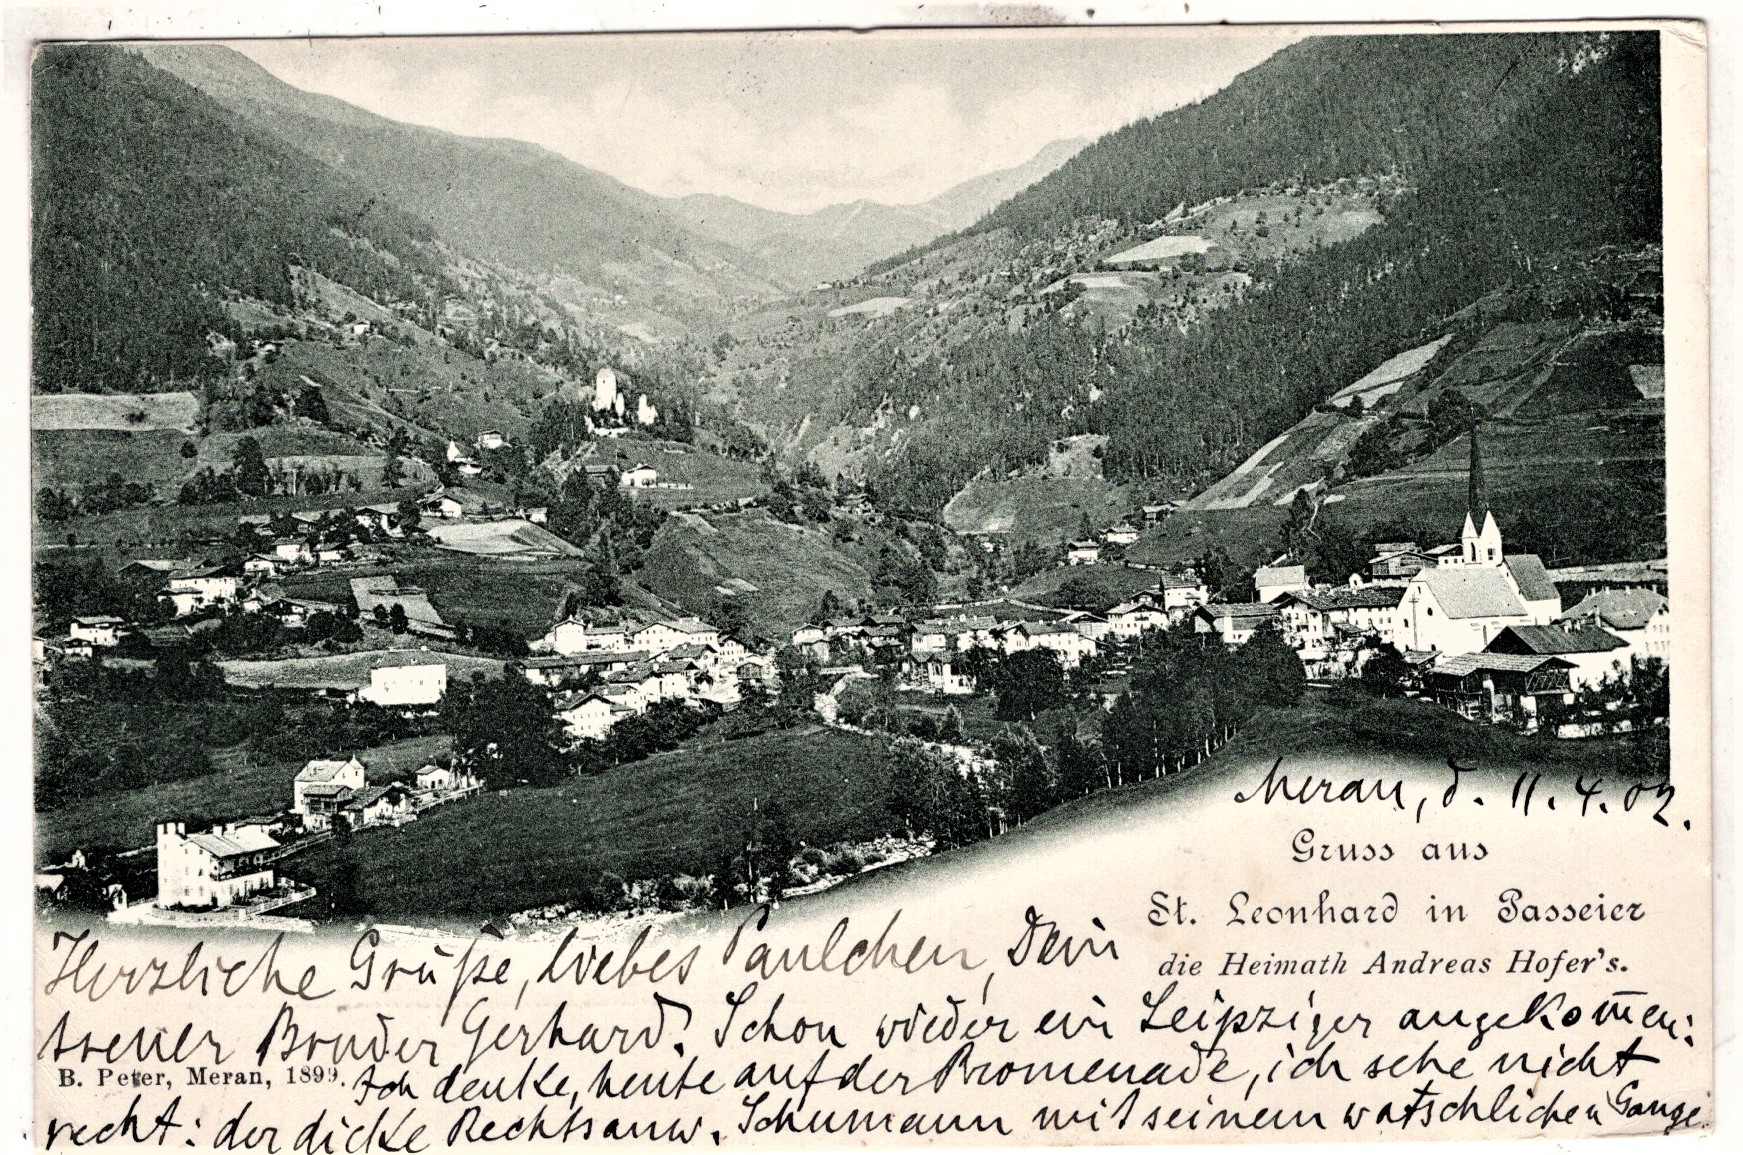 Meran, d. 11. 4. 02.
Gruss aus
St. Leonhard in Passeier
die Heimath Andreas Hofer's.
Herzliche Grüße, liebes Paulchen, Dein
treuer Bruder Gerhard. Schon wieder ein Leipziger angekom̅en:
B. Peter, Meran, 1899.
Ich denke, heute auf der Promenade, ich sehe nicht
recht: der dicke Rechtsanw. Schumann mit seinem watschlichen Gange.